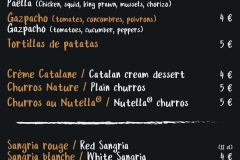 Paella (Chicken, squid, king prawn, mussels, chorizo)
Gazpacho (tomates, concombres, poivrons) 4 €
Gazpacho (tomatoes, cucumber, peppers)
Tortillas de patatas 5 €
Crème Catalane / Catalan cream dessert 4 €
Churros Nature / Plain churros 5 €
Churros au Nutella® / Nutella® churros 5 €
Sangria rouge / Red Sangria
Sangria blanche / White Sangria 4 €